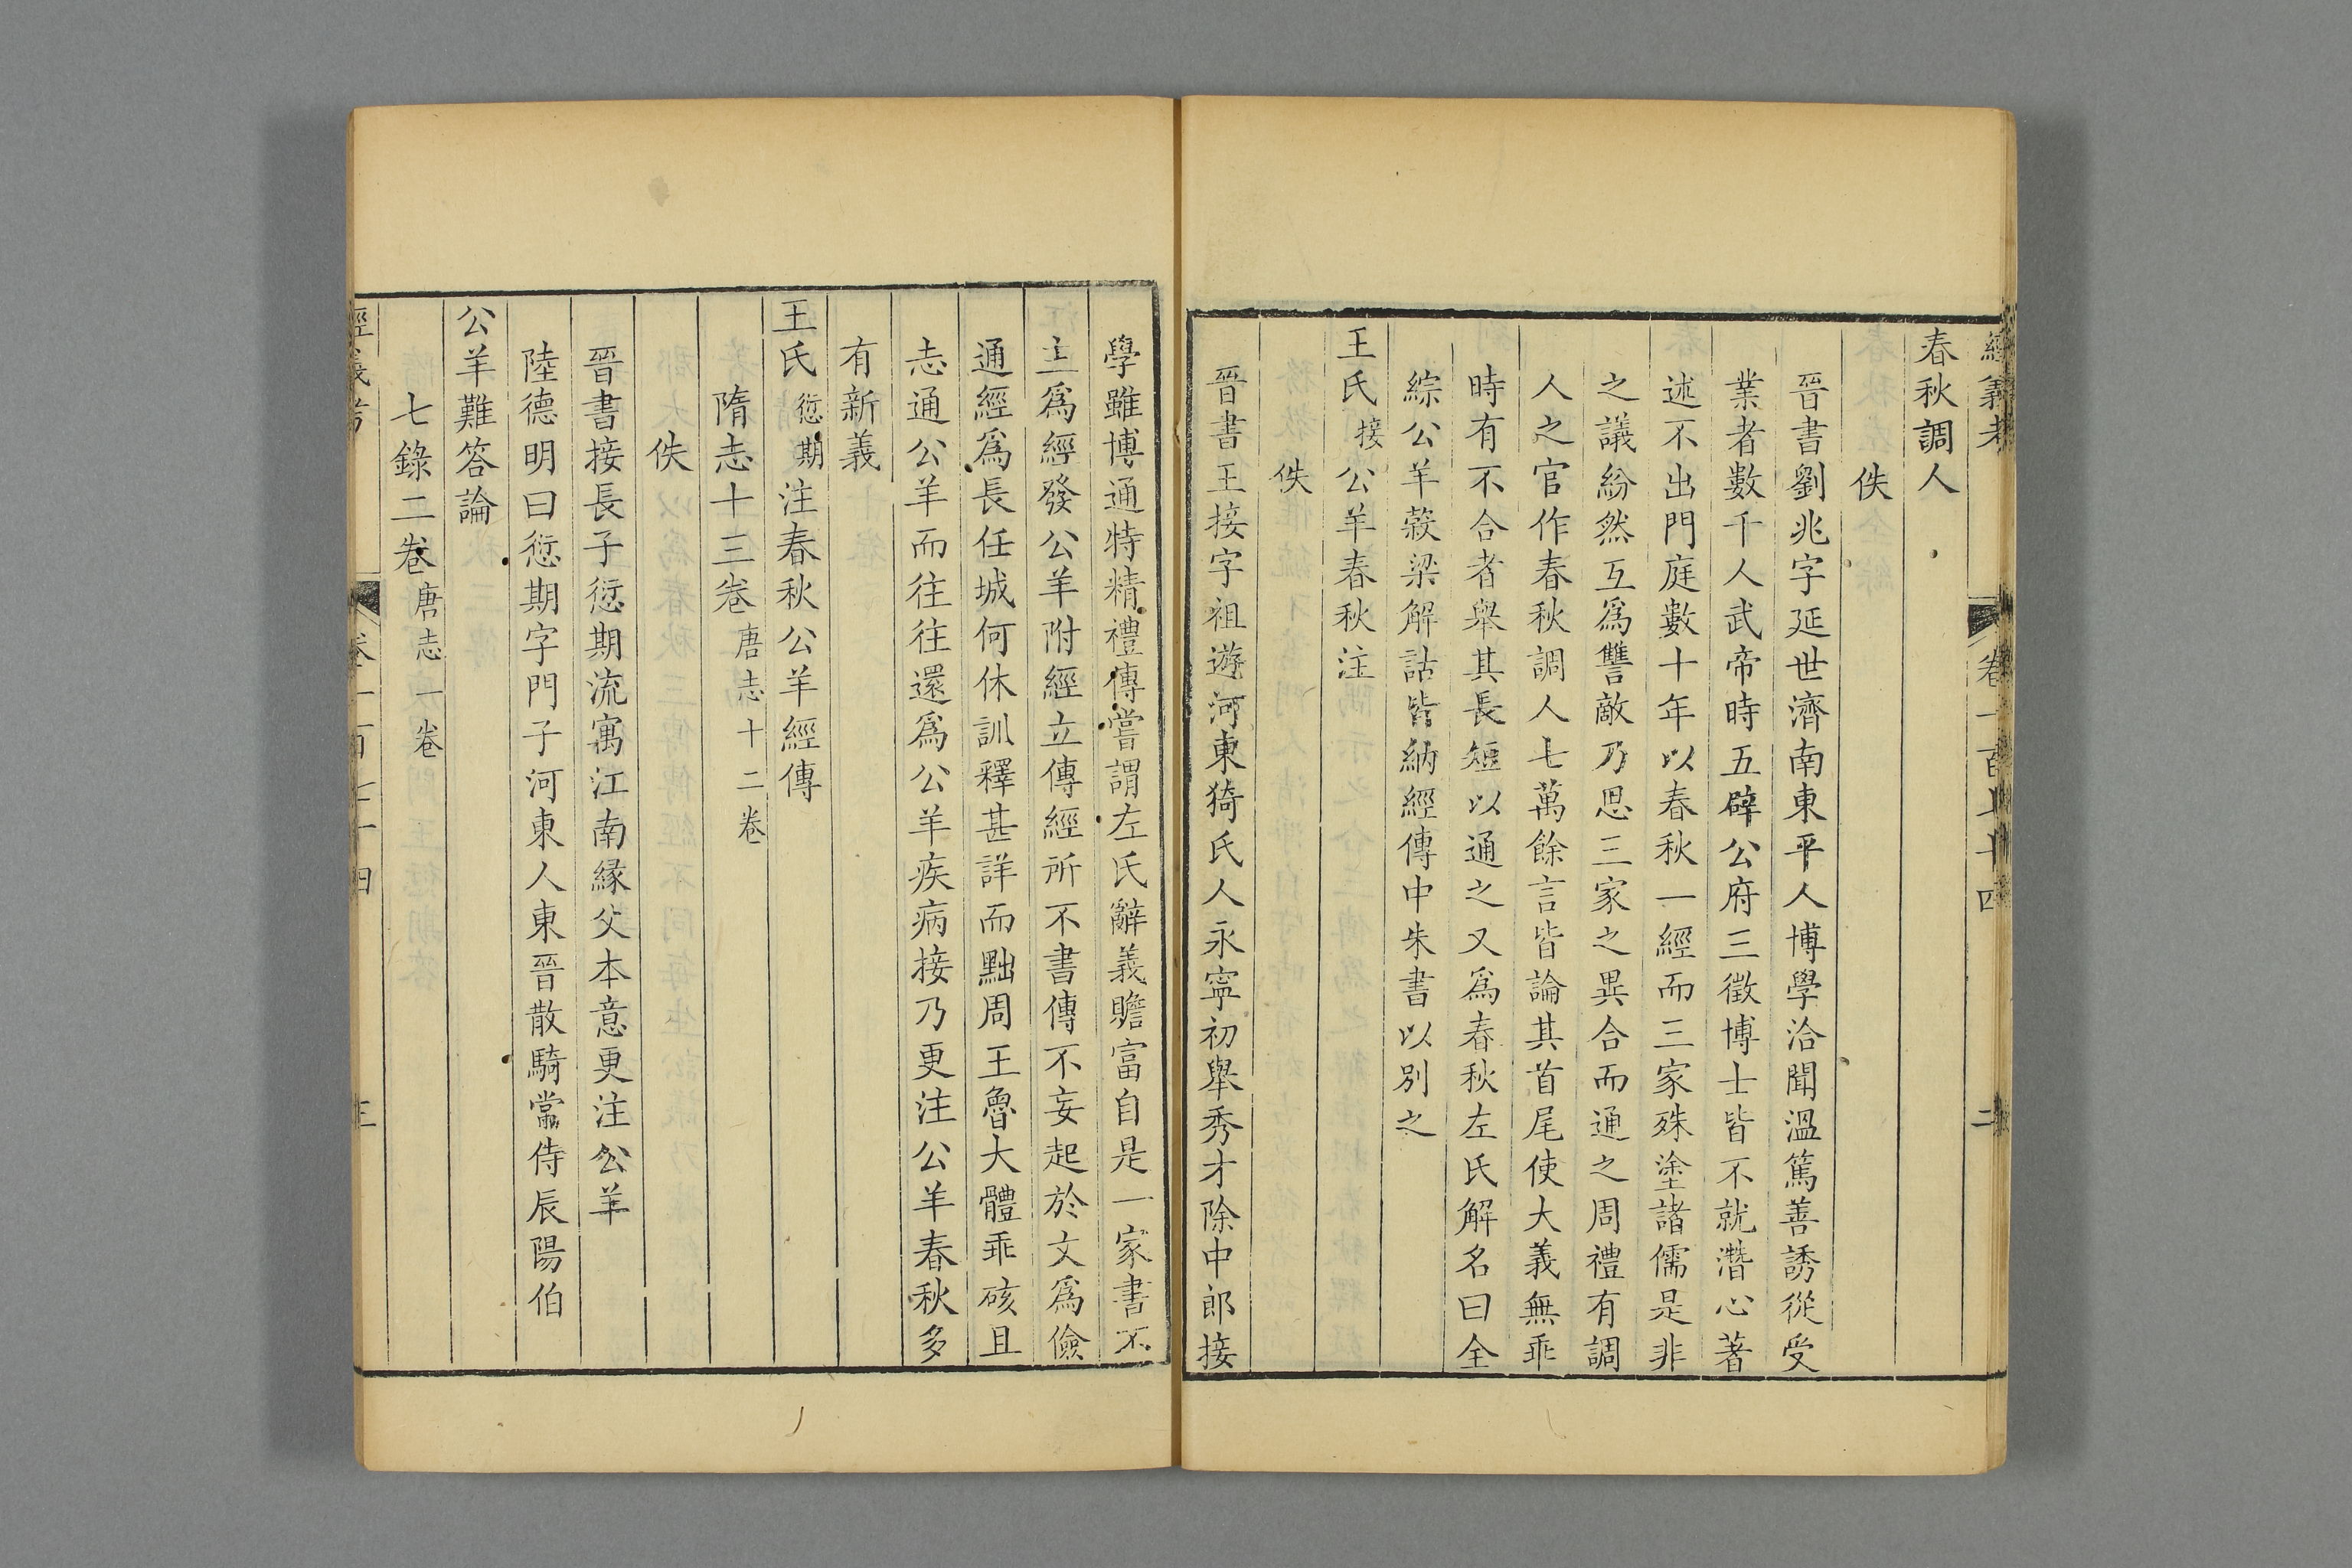 經義考 卷一百七十四 二
春秋調人
佚
晉書劉兆字延世濟南東平人博學洽聞溫篤善誘從受
業者數千人武帝時五辟公府三徵博士皆不就潛心著
述不出門庭數十年以春秋一經而三家殊塗諸儒是非
之議紛然互爲讐敵乃思三家之異合而通之周禮有調
人之官作春秋調人七萬餘言皆論其首尾使大義無乖
時有不合者舉其長短以通之又爲春秋左氏解名曰全
綜公羊糓梁解詁皆納經傳中朱書以別之
王氏接公羊春秋注
佚
晉書王接字祖遊河東猗氏人永寧初舉秀才除中郎接
學雖博通特精禮傳嘗謂左氏辭義贍富自是一家書不
主爲經發公羊附經立傳經所不書傳不妄起於文爲儉
通經爲長任城何休訓釋甚詳而黜周王魯大體乖硋且
志通公羊而往往還爲公羊疾病接乃更注公羊春秋多
有新義
王氏愆期注春秋公羊經傳
隋志十三卷唐志十二卷
佚
晉書接長子愆期流寓江南緣父本意更注公羊
陸德明曰愆期字門子河東人東晉散騎常侍辰陽伯
公羊難答論
七錄二卷唐志一卷
經義考 卷一百七十四 三